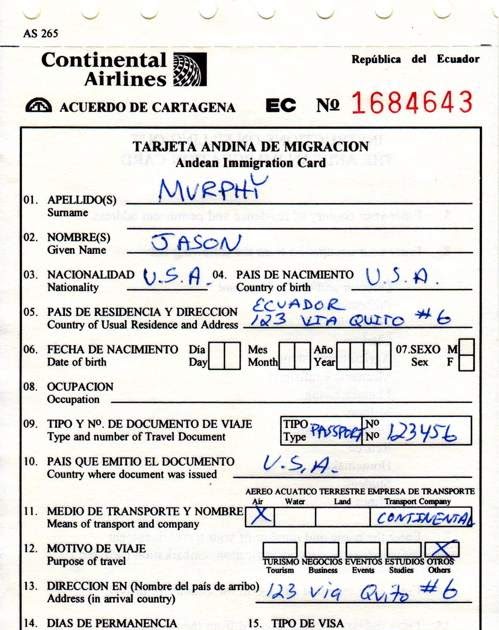 AS 265
Continental Airlines
República del Ecuador
ACUERDO DE CARTAGENA EC Nº 1684643
TARJETA ANDINA DE MIGRACION
Andean Immigration Card
01. APELLIDO(S) MURPHY
Surname
02. NOMBRE(S) JASON
Given Name
03. NACIONALIDAD U.S.A. 04. PAIS DE NACIMIENTO U.S.A.
Nationality Country of birth
ECUADOR
05. PAIS DE RESIDENCIA Y DIRECCION
Country of Usual Residence and Address 123 VIA QUITO #6
06. FECHA DE NACIMIENTO Día Mes Año 07.SEXO M
Date of birth Day Month Year Sex F
08. OCUPACION
Occupation
09. TIPO Y Nº. DE DOCUMENTO DE VIAJE TIPO PASSPORT Nº 123456
Type and number of Travel Document Type Nº
10. PAIS QUE EMITIO EL DOCUMENTO U.S.A.
Country where document was issued
AEREO ACUATICO TERRESTRE EMPRESA DE TRANSPORTE
Air Water Land Transport Company
11. MEDIO DE TRANSPORTE Y NOMBRE X CONTINENTAL
Means of transport and company
12. MOTIVO DE VIAJE X
Purpose of travel TURISMO NEGOCIOS EVENTOS ESTUDIOS OTROS
Tourism Business Events Studies Others
13. DIRECCION EN (Nombre del país de arribo) 123 via Quito #6
Address (in arrival country)
14. DIAS DE PERMANENCIA 15. TIPO DE VISA